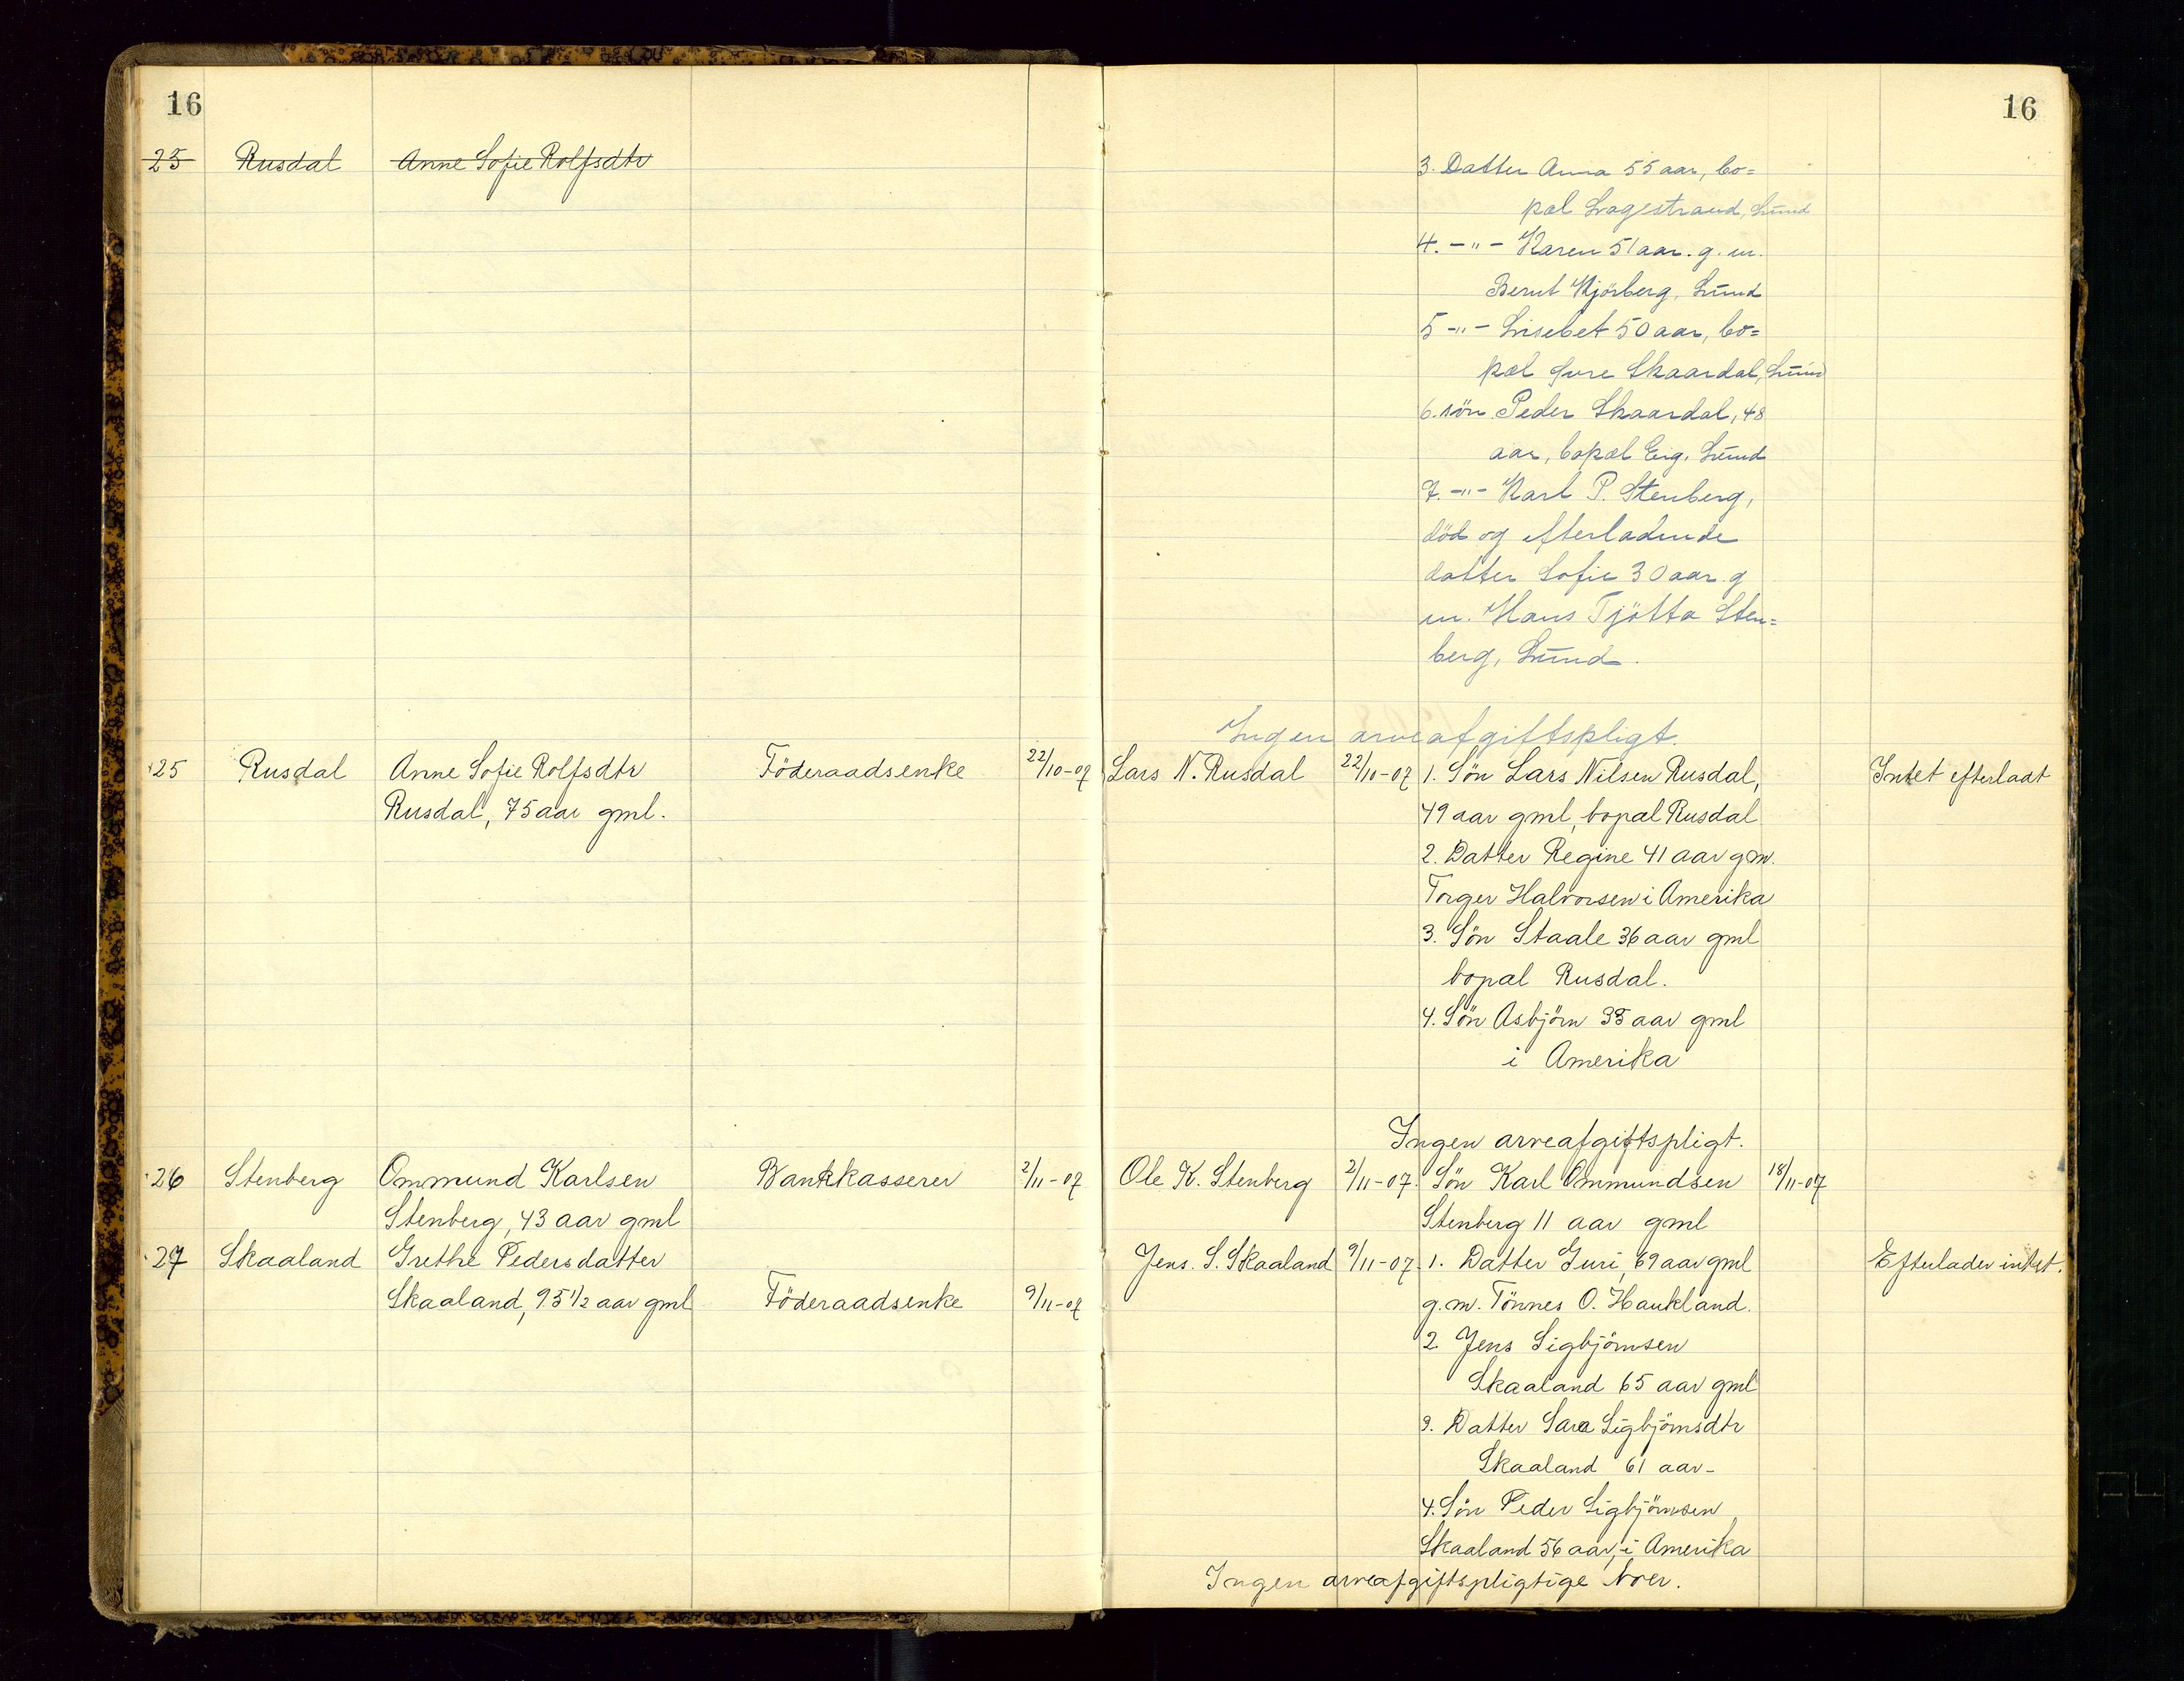 16
16
25 Rusdal Anne Sofie Rolfsdtr
3. Datter Anna 55 aar, bo=
pæl Lagestrand, Lund
4. -"- Karen 51 aar. g. m.
Bernt Kjörberg, Lund
5 -"- Lisebet 50 aar, bo=
pæl Skaardal, Lund
6. sön Peder Skaardal, 48
aar, bopæl Eig, Lund
7. -"- Karl P. Stenberg,
död og efterladende
datter Sofie 30 aar g
m. Hans Tjötta Sten=
berg, Lund.
Ingen arveafgiftspligt.
25 Rusdal Anne Sofie Rolfsdtr Föderaadsenke 22/10-07 Lars N. Rusdal 22/10-07 1. Sön Lars Nilsen Rusdal, Intet efterladt
Rusdal, 75 aar gml. 49 aar gml, bopæl Rusdal
2. Datter Regine 41 aar g.m.
Torger Halvorsen i Amerika
3. Sön Staale 36 aar gml
bopal Rusdal.
4. Sön Asbjörn 35 aar gml
i Amerika
Ingen arveafgiftspligt.
26 Stenberg Ommund Karlsen Bankkasserer 2/11-07 Ole K. Stenberg 2/11-07. Sön Karl Ommundsen 18/11-07
Stenberg, 43 aar gml Stenberg 11 aar gml
27 Skaaland Grethe Pedersdatter Jens. S. Skaaland 9/11-07 1. Datter Guri, 69 aar gml Efterlader intet.
Skaaland, 95 1/2 aar gml Föderaadsenke 9/11-07 g.m. Tönnes O. Haukland.
2 Jens Sigbjörnsen
Skaaland 65 aar gml
3. Datter Sara Sigbjörnsdtr
Skaaland 61 aar-
4. Sön Peder Sigbjörnsen
Skaaland 56 aar, i Amerika
Ingen arveafgiftspligtige